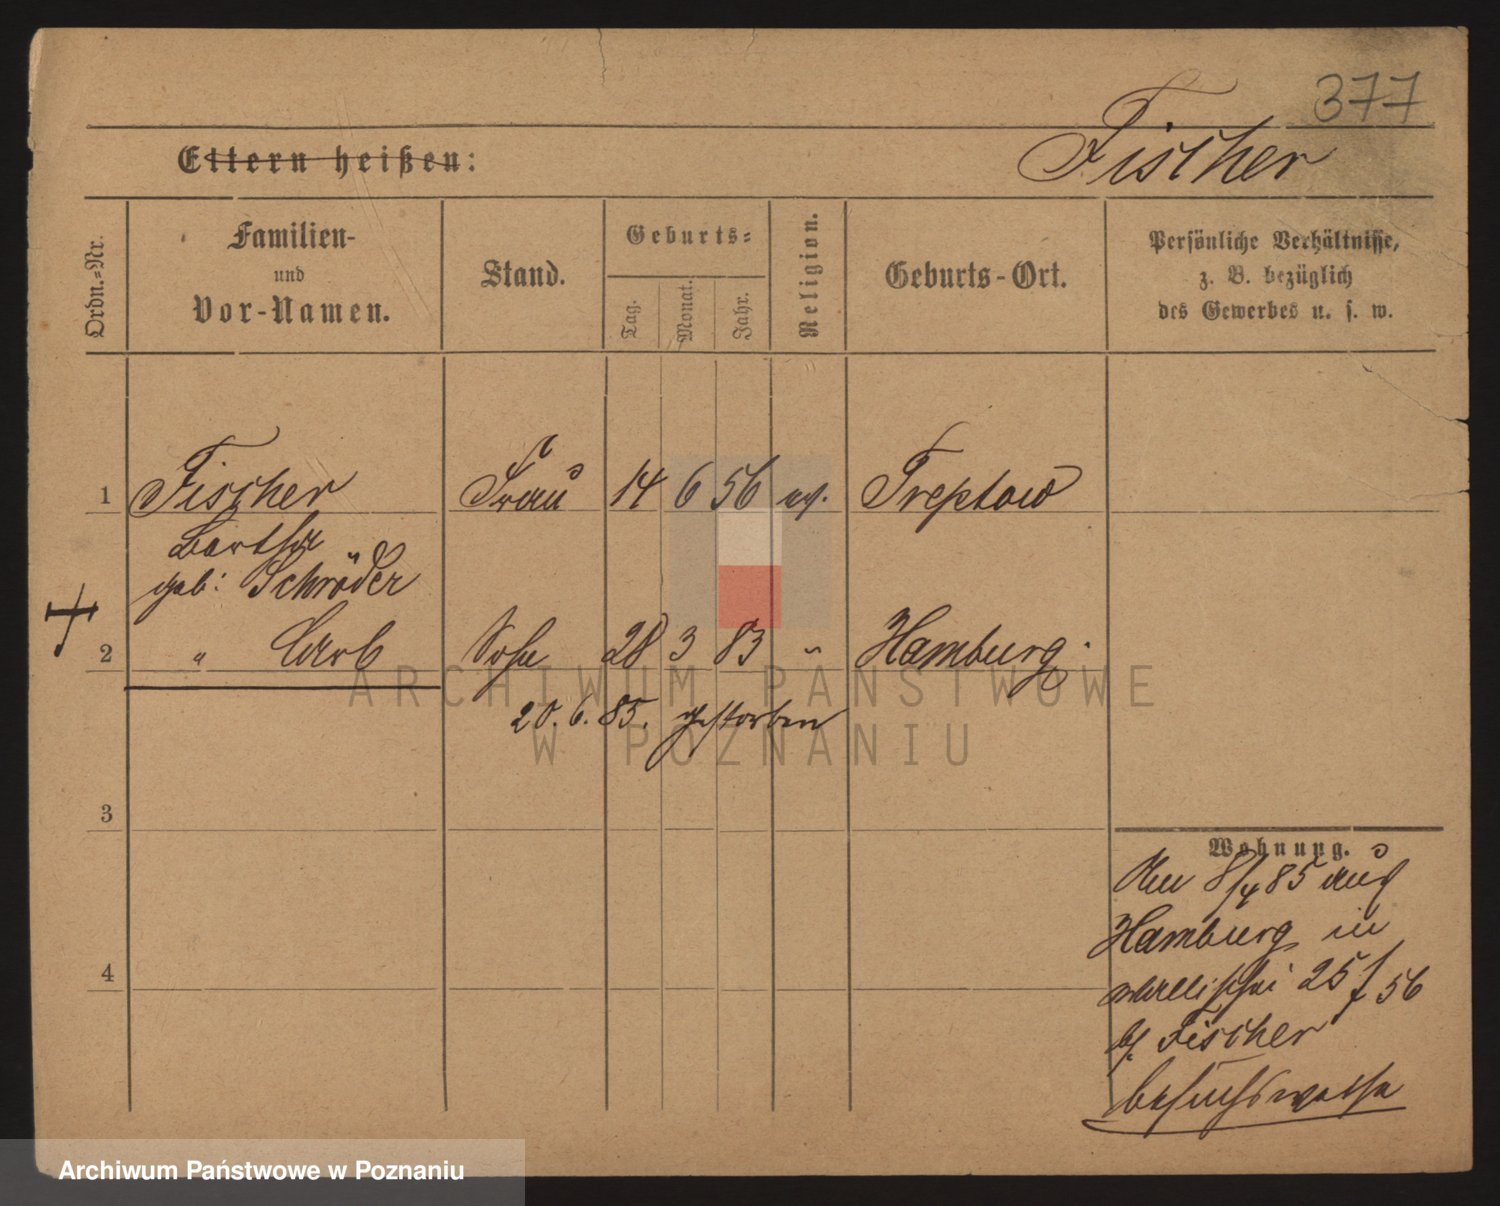 377
Eltern heißen:
Fischer
Ordn.-Nr.
Familien-
und
Vor-Namen.
Stand.
Geburts-
Tag.
Monat.
Jahr.
Religion.
Geburts-Ort.
Persönliche Verhältnisse,
z. B. bezüglich
des Gewerbes u. s. w.
1 Fischer Frau 14 6 56 ev. Treptow
Bertha
geb: Schröder
2 " Carl Sohn 28 3 83 " Hamburg.
20. 6. 85. gestorben
3
4
Wohnung.
Am 8/4 85 aus
Hamburg in
Wallischei 25/56
b/ Fischer
besuchsweise
ARCHIWUM PAŃSTWOWE
W POZNANIU
Archiwum Państwowe w Poznaniu